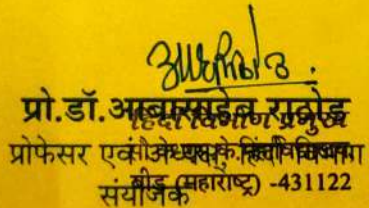 प्रो.डॉ.आबासाहेब राठोड
हिंदी विभाग प्रमुख
प्रोफेसर एवं अध्यक्ष, हिंदी विभाग
संयोजक
बीड (महाराष्ट्र) -431122